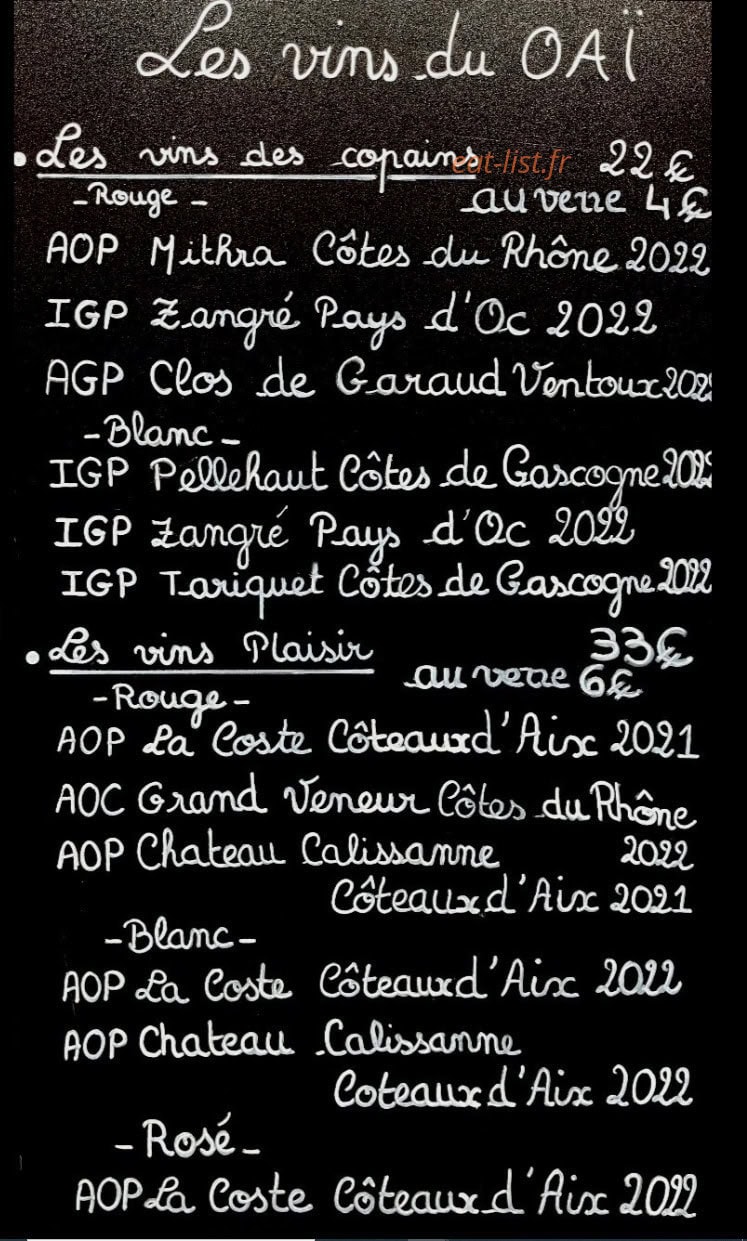 Les vins du OAÏ
• Les vins des copains 22€
eat-list.fr
- Rouge - au verre 4€
AOP Mithra Côtes du Rhône 2022
IGP Zangré Pays d'Oc 2022
AGP Clos de Garaud Ventoux 202
- Blanc -
IGP Pellehaut Côtes de Gascogne 202
IGP Zangré Pays d'Oc 2022
IGP Tariquet Côtes de Gascogne 2022
• Les vins Plaisir 33€
au verre 6€
- Rouge -
AOP La Coste Côteaux d'Aix 2021
AOC Grand Veneur Côtes du Rhône
2022
AOP Chateau Calissanne
Côteaux d'Aix 2021
- Blanc -
AOP La Coste Côteaux d'Aix 2022
AOP Chateau Calissanne
Coteaux d'Aix 2022
- Rosé -
AOP La Coste Côteaux d'Aix 2022